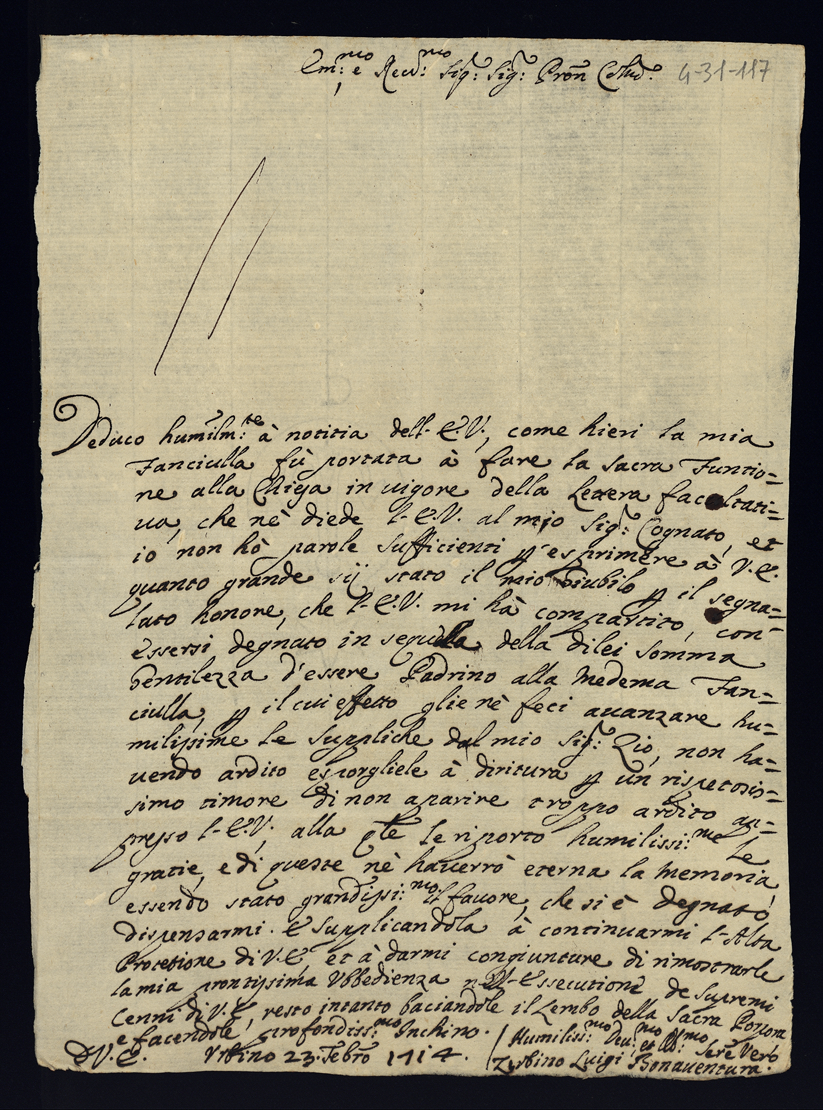 Em:mo e Revd:mo Sig: Sig: Pron Colmo: 4-31-117
Deduco humilm:te à notitia dell-E.V., come hieri la mia
Fanciulla fù portata à fare la sacra Funtio=
ne alla Chiesa in vigore della Lettera facoltati=
va, che nè diede l-E.V. al mio Sig: Cognato, et
io non hò parole sufficienti p esprimere à V.E.
quanto grande sij stato il mio Giubilo p il segna=
lato honore, che l-E.V. mi hà compartito, con
essersi degnato in sequella della dilei somma
Gentilezza d'essere Padrino alla medema Fan=
ciulla, p il cui effetto glie nè feci avanzare hu=
milissime le suppliche dal mio Sig: Zio, non ha=
vendo ardito esporgliele à diritura p un rispetosis=
simo timore di non aparire troppo ardito ap=
presso l-E.V., alla qle le riporto humilissi:me le
gratie, e di queste nè haverrò eterna la memoria,
essendo stato grandissi:mo il favore, che si è degnato
dispensarmi. E supplicandola à continuarmi l-Alta
Protetione di V.E. et à darmi congiunture di rimostrarle
la mia prontissima Ubbedienza nell-Essecutione de supremi
Cenni di V.E., resto intanto baciandole il Lembo della Sacra Porpora
e facendole profondiss:mo Inchino.
D.V.E. Urbino 23. Febro 1714.
Humilis:mo Dev:mo et Obb:mo Serre Vero
Zirbino Luigi Bonaventura.